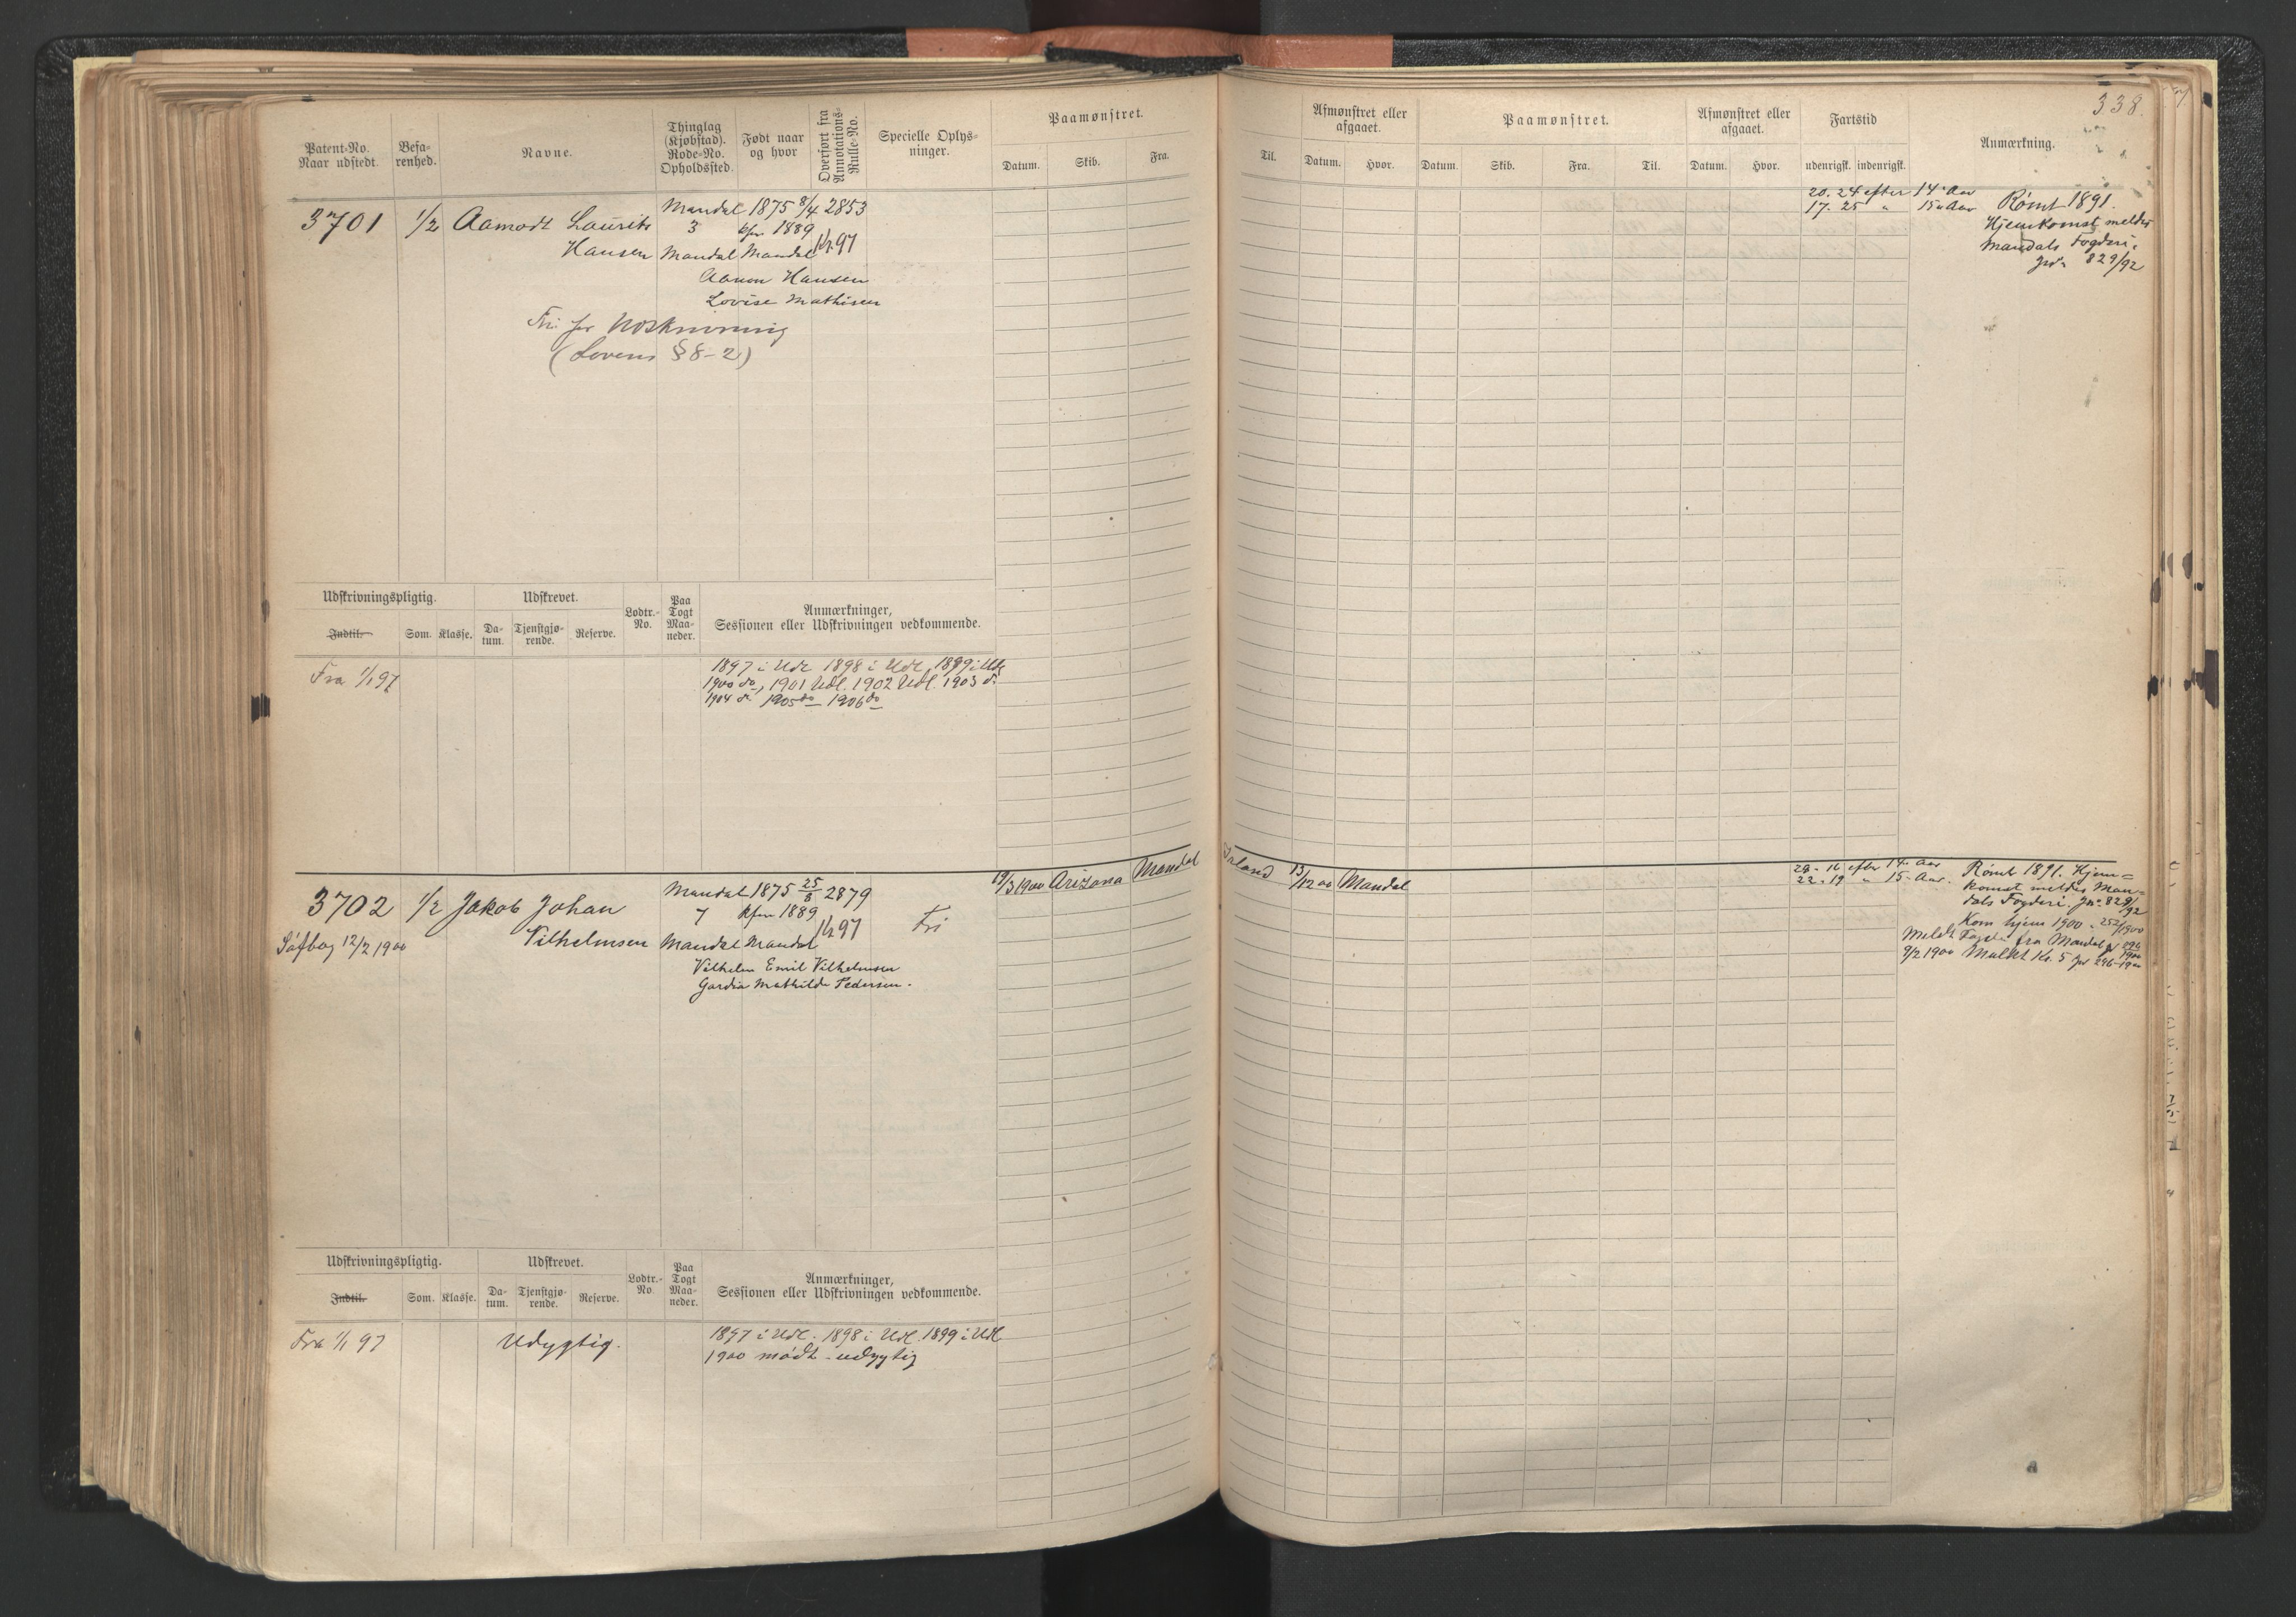 338.
Patent-No.
Naar udstedt.
Befa-
renhed.
Navne.
Thinglag
(Kjøbstad).
Rode-No.
Opholdssted.
Født naar
og hvor
Overført fra
Annotations-
Rulle-No.
Specielle Oplys-
ninger.
Paamønstret.
Datum.
Skib.
Fra.
Til.
Afmønstret eller
afgaaet.
Datum.
Hvor.
Paamønstret.
Datum.
Skib.
Fra.
Til.
Afmønstret eller
afgaaet.
Datum.
Hvor.
Fartstid
udenrigsk.
indenrigsk.
Anmærkning.
3701 1/2 Aamodt Laurits
Hansen
Mandal 1875 8/4 2853
3 kfm 1889
Mandal Mandal 1/1 97
Aanon Hansen
Lovise Mathisen
Fri for Udskrivning
(Lovens § 8-2)
20. 24 efter 14 Aar
17. 25 " 15 " Aar
Rømt 1891.
Hjemkomst meldes
Mandals Fogderi.
Jno 829/92
Udskrivningspligtig.
Indtil.
Som.
Klasse.
Udskrevet.
Da-
tum.
Tjenstgjø-
rende.
Reserve.
Lodtr.-
No.
Paa
Togt
Maa-
neder.
Anmærkninger,
Sessionen eller Udskrivningen vedkommende.
Fra 1/1 97
1897 i Udl 1898 i Udl, 1899 i Udl
1900 do, 1901 Udl. 1902 Udl. 1903 do
1904 do 1905 do 1906 do
3702 1/2 Jakob Johan
Vilhelmsen
Søfbog 12/2 1900
Mandal 1875 25/8 2879
7 kfm 1889
Mandal Mandal 1/1 97
Vilhelm Emil Vilhelmsen
Gardia Mathilde Pedersen.
Fri
19/3 1900 Arizona Mandal
Island 13/12 00 Mandal
22 - 19 " 15 - Aar.
Rømt 1891. Hjem=
komst meldes Man=
dals Fogderi. Jno 829/92
Kom hjem 1900 - 252/1900
9/2 1900 Mulkt Kr. 5 Jno 296-1900
Udskrivningspligtig.
Indtil.
Som.
Klasse.
Udskrevet.
Da-
tum.
Tjenstgjø-
rende.
Reserve.
Lodtr.-
No.
Paa
Togt
Maa-
neder.
Anmærkninger,
Sessionen eller Udskrivningen vedkommende.
Fra 1/1 97
Udygtig.
1897 i Udl. 1898 i Udl. 1899 i Udl
1900 mødt - udygtig